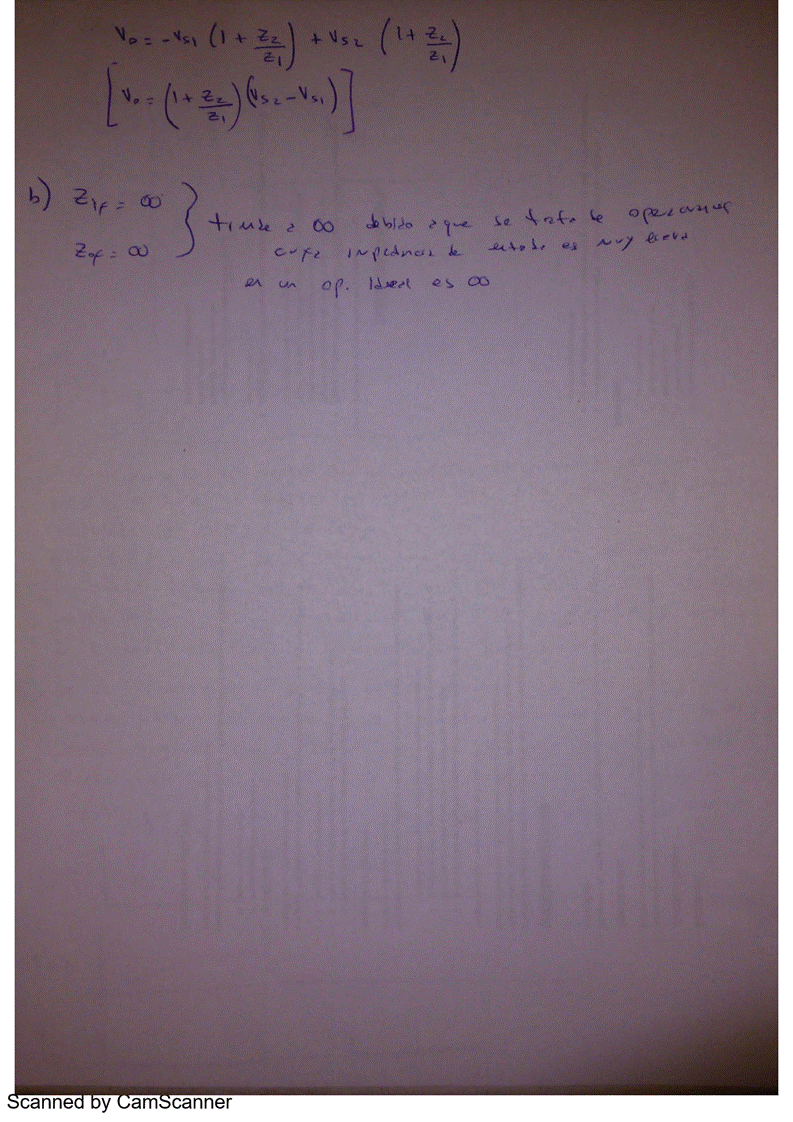 V₀ = -Vs₁ (1 + Z₂/Z₁) + Vs₂ (1 + Z₂/Z₁)
[V₀ = (1 + Z₂/Z₁)(Vs₂ - Vs₁)]
b) Zif = ∞ } tiende a ∞ debido a que se trata de
Zof = ∞ cuya impedancia de entrada es muy
en un op. ideal es ∞
Scanned by CamScanner